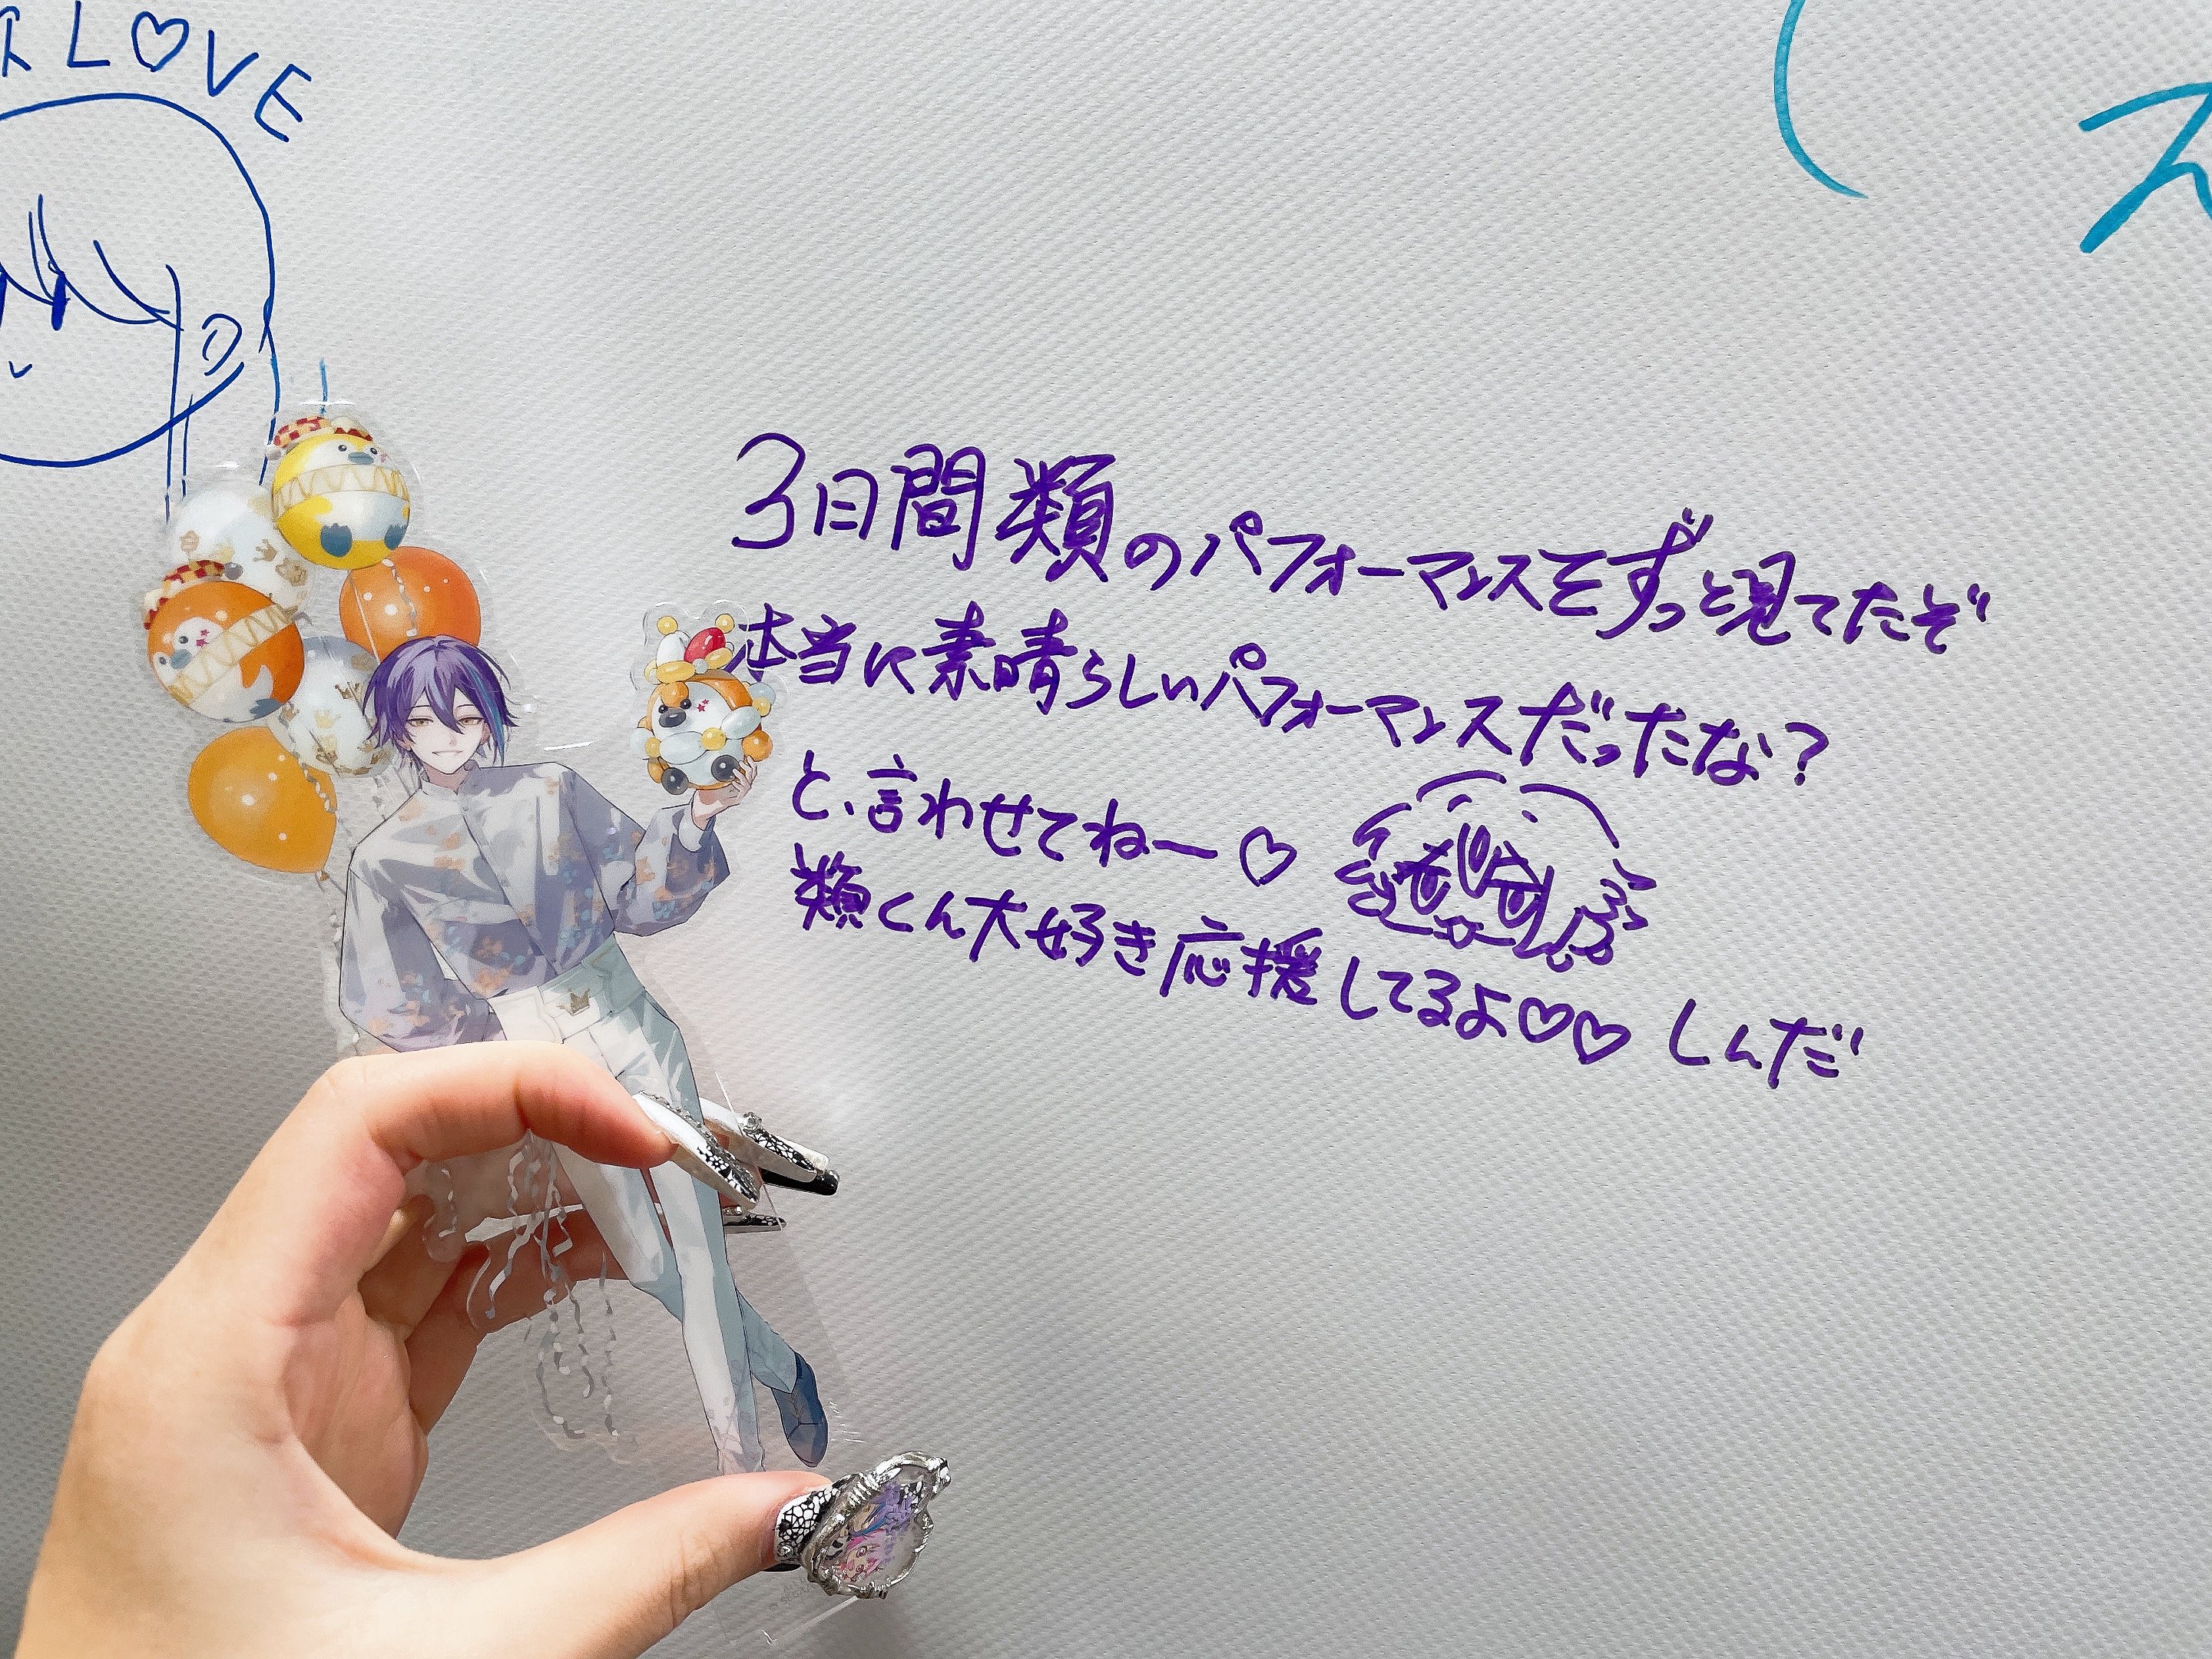 L♡VE
3日間類のパフォーマンスをずっと見てたぞ
本当に素晴らしいパフォーマンスだったな?
と、言わせてねー♡
類くん大好き応援してるよ♡♡ しんだ